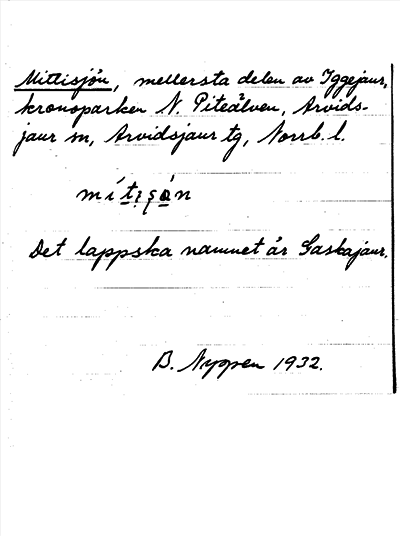 Mittisjön, mellersta delen av Iggejaur,
kronoparken N. Piteälven, Arvids-
jaur sn, Arvidsjaur tg, Norrb. l.
Det lappska namnet är Gaskajaur.
B. Nygren 1932.